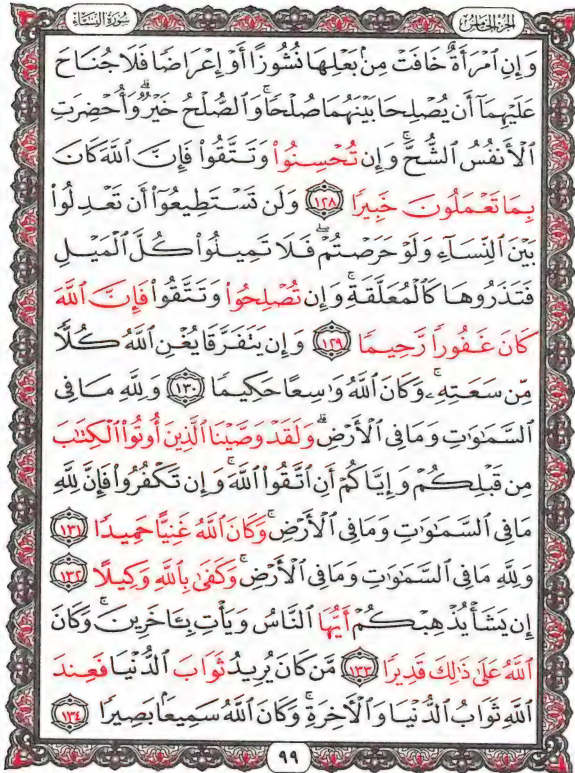 الجزء الخامس
سورة النساء
وَإِنِ ٱمْرَأَةٌ خَافَتْ مِنۢ بَعْلِهَا نُشُوزًا أَوْ إِعْرَاضًا فَلَا جُنَاحَ
عَلَيْهِمَآ أَن يُصْلِحَا بَيْنَهُمَا صُلْحًا ۚ وَٱلصُّلْحُ خَيْرٌ ۗ وَأُحْضِرَتِ
ٱلْأَنفُسُ ٱلشُّحَّ ۚ وَإِن تُحْسِنُوا۟ وَتَتَّقُوا۟ فَإِنَّ ٱللَّهَ كَانَ
بِمَا تَعْمَلُونَ خَبِيرًا ١٢٨ وَلَن تَسْتَطِيعُوٓا۟ أَن تَعْدِلُوا۟
بَيْنَ ٱلنِّسَآءِ وَلَوْ حَرَصْتُمْ ۖ فَلَا تَمِيلُوا۟ كُلَّ ٱلْمَيْلِ
فَتَذَرُوهَا كَٱلْمُعَلَّقَةِ ۚ وَإِن تُصْلِحُوا۟ وَتَتَّقُوا۟ فَإِنَّ ٱللَّهَ
كَانَ غَفُورًا رَّحِيمًا ١٢٩ وَإِن يَتَفَرَّقَا يُغْنِ ٱللَّهُ كُلًّا
مِّن سَعَتِهِۦ ۚ وَكَانَ ٱللَّهُ وَٰسِعًا حَكِيمًا ١٣٠ وَلِلَّهِ مَا فِى
ٱلسَّمَٰوَٰتِ وَمَا فِى ٱلْأَرْضِ ۗ وَلَقَدْ وَصَّيْنَا ٱلَّذِينَ أُوتُوا۟ ٱلْكِتَٰبَ
مِن قَبْلِكُمْ وَإِيَّاكُمْ أَنِ ٱتَّقُوا۟ ٱللَّهَ ۚ وَإِن تَكْفُرُوا۟ فَإِنَّ لِلَّهِ
مَا فِى ٱلسَّمَٰوَٰتِ وَمَا فِى ٱلْأَرْضِ ۚ وَكَانَ ٱللَّهُ غَنِيًّا حَمِيدًا ١٣١
وَلِلَّهِ مَا فِى ٱلسَّمَٰوَٰتِ وَمَا فِى ٱلْأَرْضِ ۚ وَكَفَىٰ بِٱللَّهِ وَكِيلًا ١٣٢
إِن يَشَأْ يُذْهِبْكُمْ أَيُّهَا ٱلنَّاسُ وَيَأْتِ بِـَٔاخَرِينَ ۚ وَكَانَ
ٱللَّهُ عَلَىٰ ذَٰلِكَ قَدِيرًا ١٣٣ مَّن كَانَ يُرِيدُ ثَوَابَ ٱلدُّنْيَا فَعِندَ
ٱللَّهِ ثَوَابُ ٱلدُّنْيَا وَٱلْـَٔاخِرَةِ ۚ وَكَانَ ٱللَّهُ سَمِيعًۢا بَصِيرًا ١٣٤
٩٩